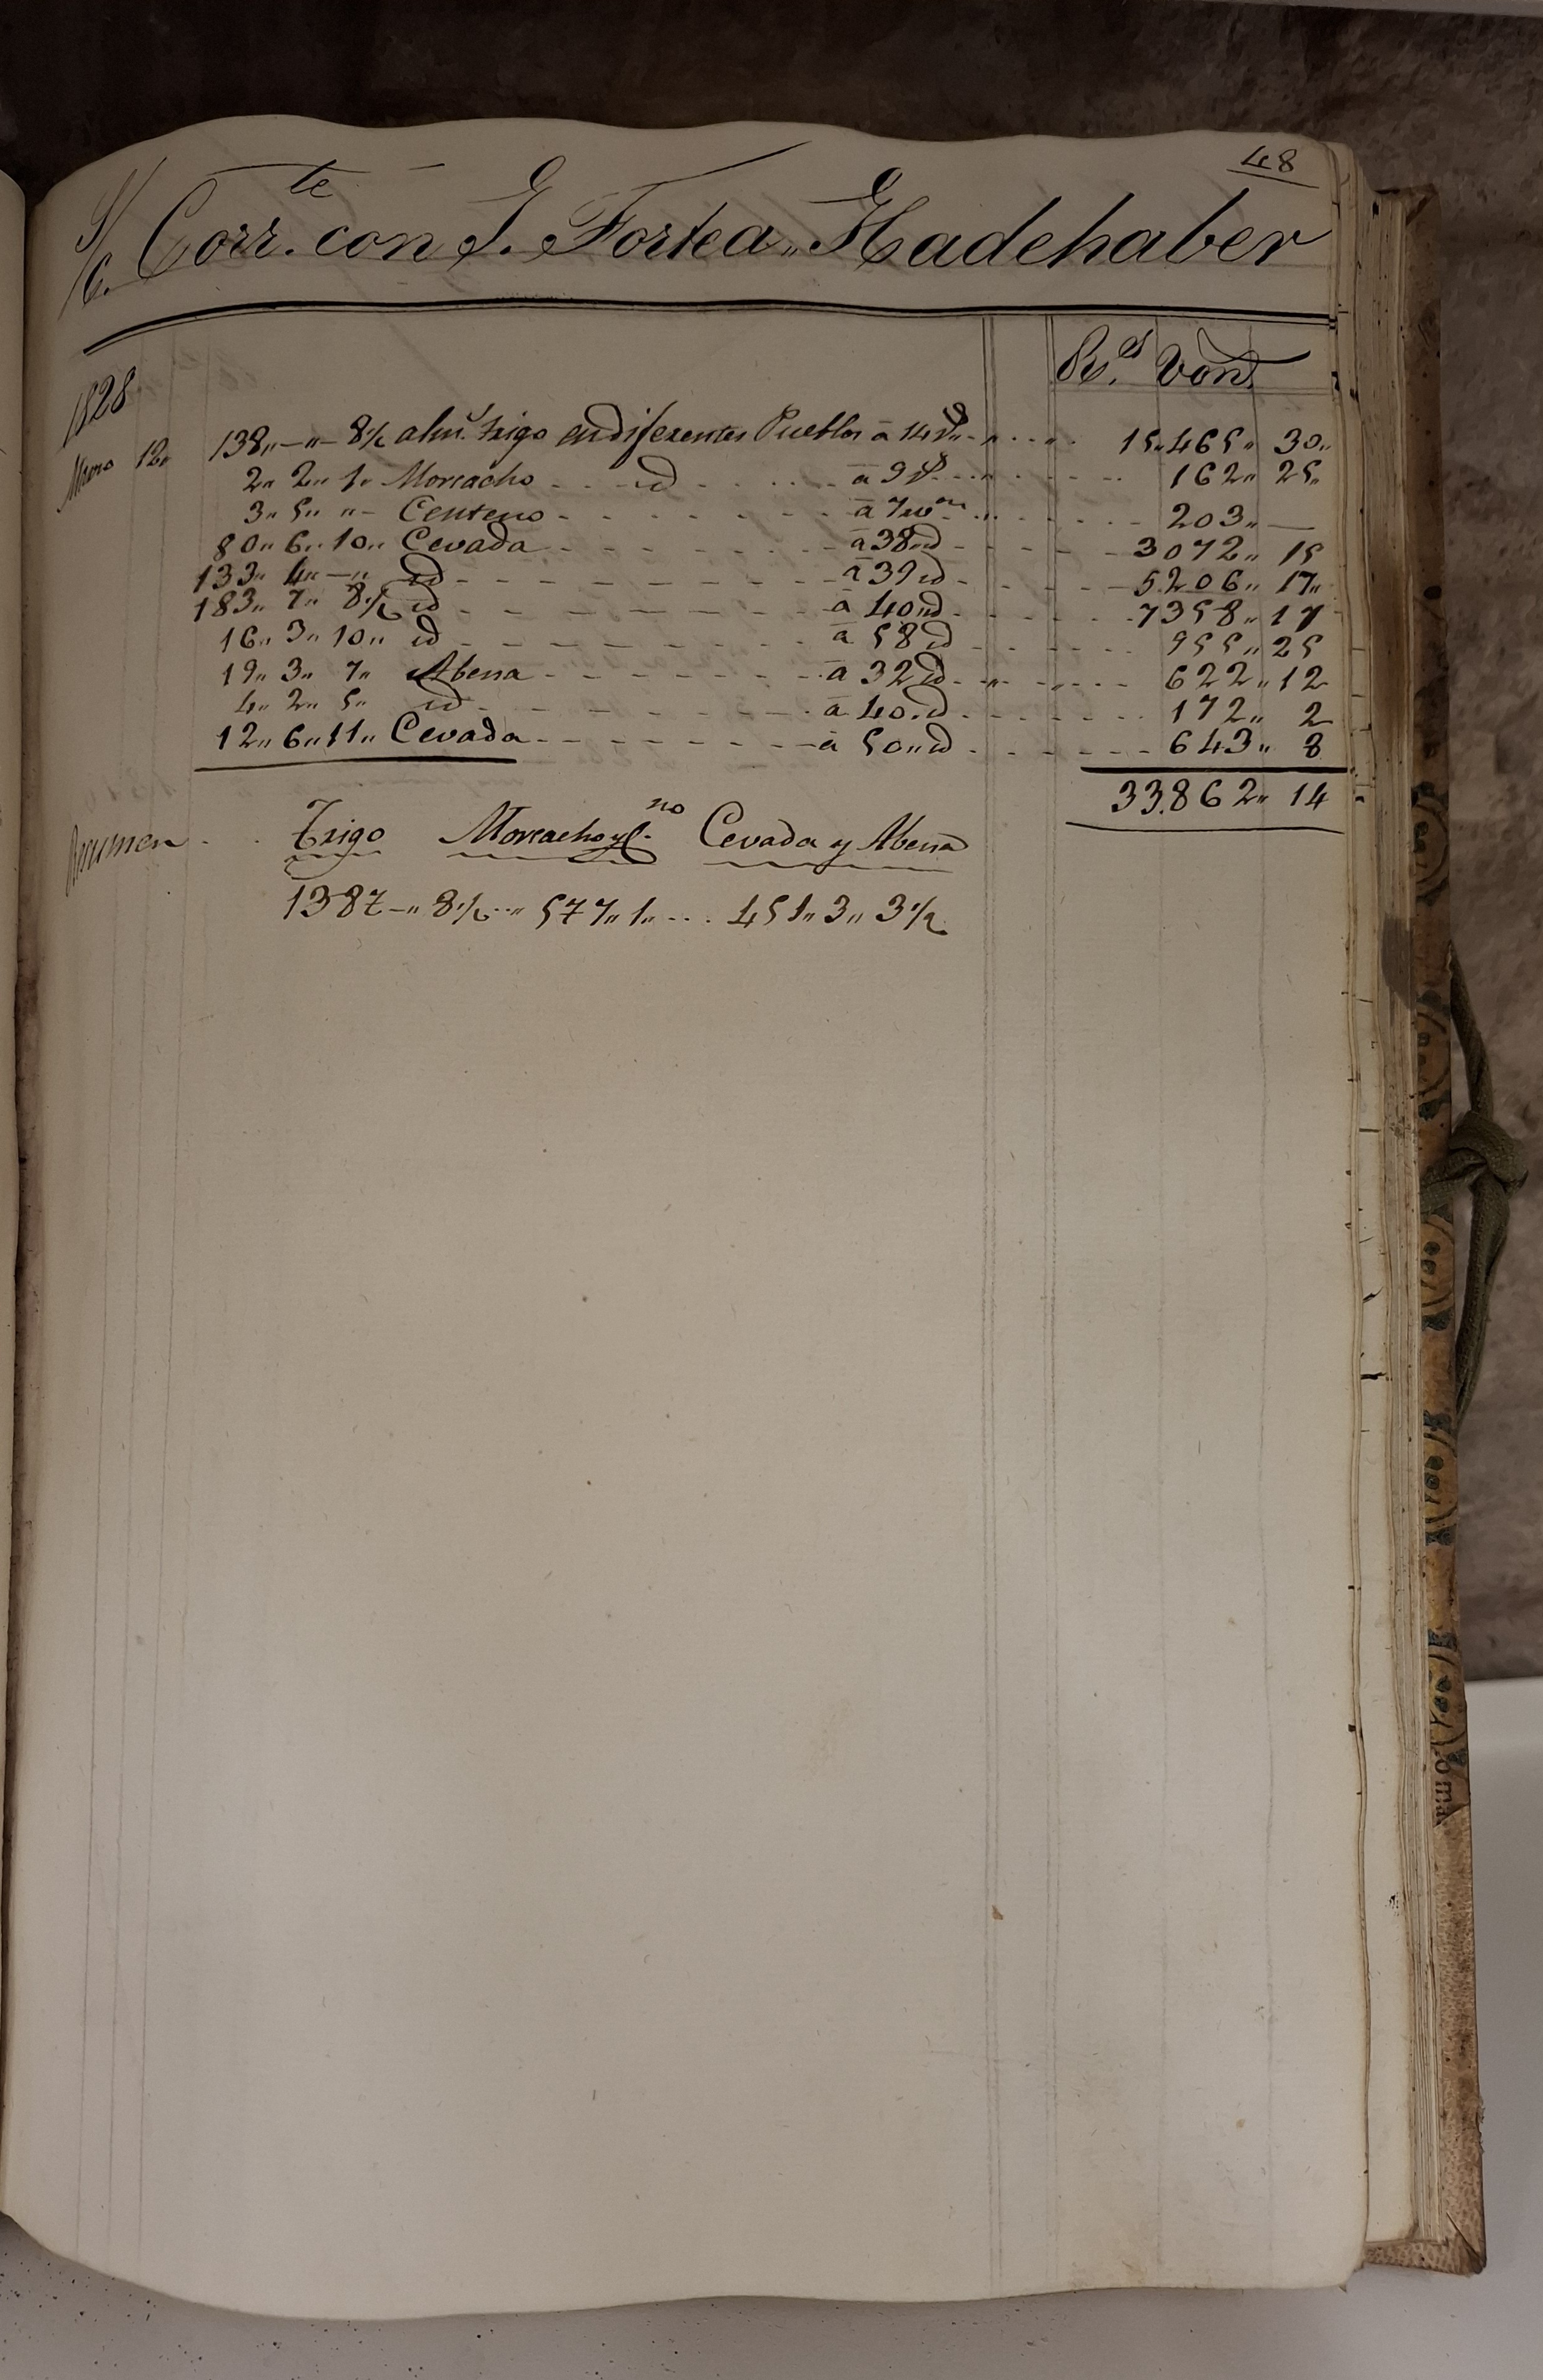 48
S/C. Corr.te con J. Fortea „ Hadehaber
R.s Von
1828
Enero 12„ 138„ — „ — 8½ alms. trigo en diferentes Pueblos à 14 „ 15„465„ 30„
2„ 2„ 1„ Morcacho id à 9 „ 162„ 25„
3„ 5„ „ — Centeno à 7 203„ —
80„ 6„ 10„ Cevada à 38 id 3072„ 15
133„ 4„ — „ id à 39 id 5206„ 17„
183„ 7„ 8½ id à 40 id 7358„ 17
16„ 3„ 10„ id à 58 id 955„ 25
19„ 3„ 7„ Abena à 32 id 622„ 12
4„ 2„ 5„ id à 40 id 172„ 2
12„ 6„ 11„ Cevada à 50„ id 643„ 8
33.862„ 14
Resumen Trigo Morcacho y C.no Cevada y Abena
138 7 — „ 8½ „ 5 7 7„ 1„ 451„ 3„ 3½